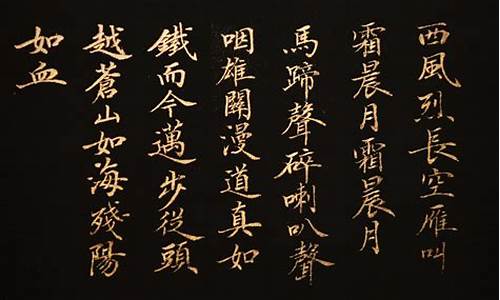 西風烈長空雁叫
霜晨月霜晨月
馬蹄聲碎喇叭聲
咽雄關漫道真如
鐵而今邁步從頭
越蒼山如海殘陽
如血